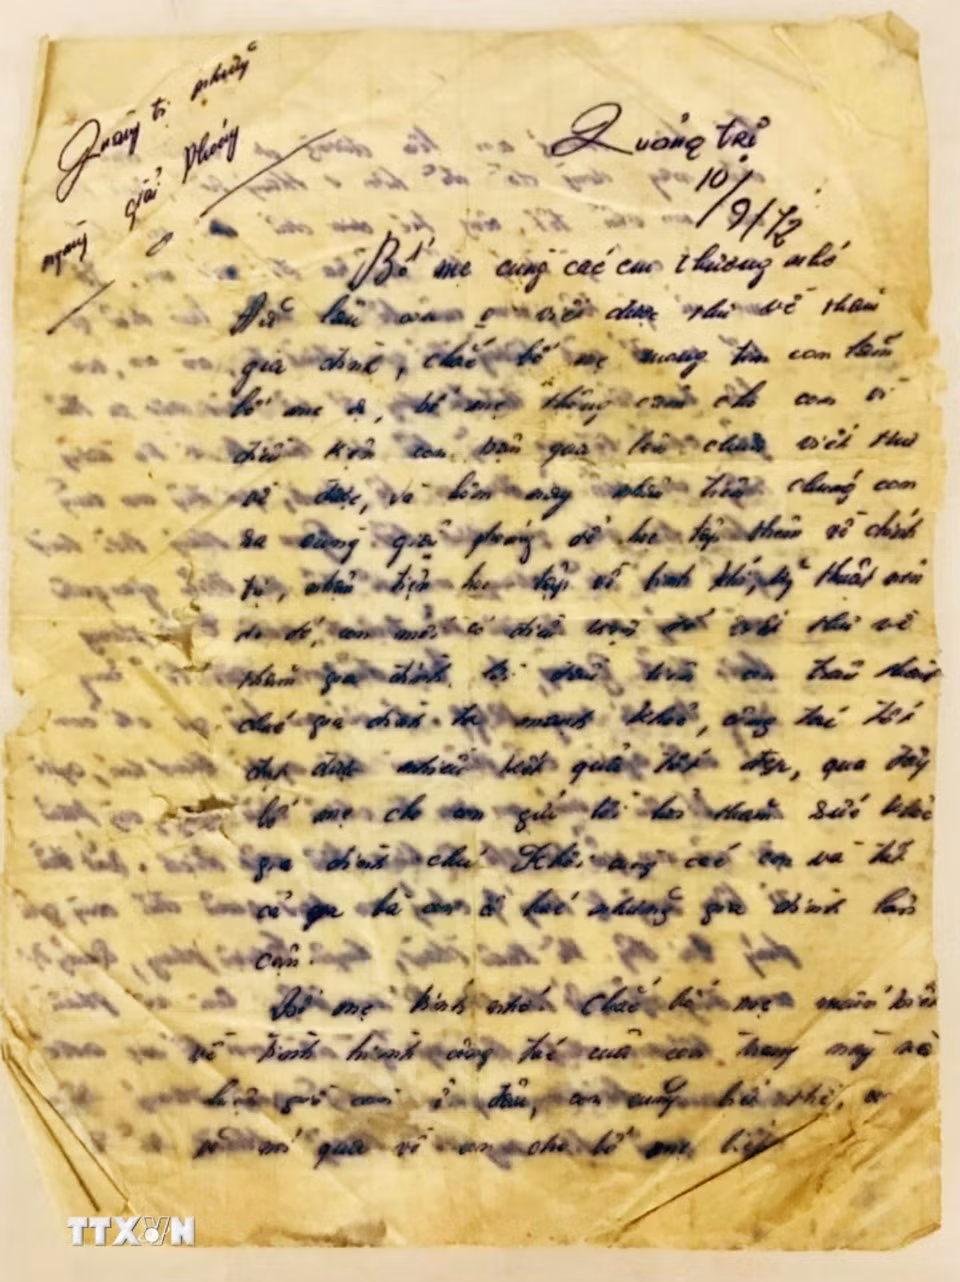 Quảng trị
ngày giải phóng
Quảng trị
10/9/72
Bố mẹ cùng các em thương nhớ
lâu con viết được thư về thăm
gia đình, chắc bố mẹ mong tin con lắm
bố mẹ ạ, bố mẹ thông cảm cho con vì
điều kiện con bận quá lên chưa viết thư
về được, và hôm nay nhân tiện chúng con
ra vùng giải phóng để học tập thêm về chính
trị, nhân tiện học tập về binh khí, kỹ thuật nên
do đó, con mới có điều kiện để viết thư về
thăm gia đình, lời đầu tiên con
chúc gia đình ta mạnh khoẻ, công tác tốt
đạt được nhiều kết quả tốt đẹp, qua đây
bố mẹ cho con gửi lời hỏi thăm sức khoẻ
gia đình chú Khôi cùng các con và tất
cả bà con cô bác những gia đình lân
cận.
Bố mẹ kính nhớ. Chắc bố mẹ muốn biết
về tình hình công tác của con trong này và
giờ con ở đâu, con cũng thế,
qua về con cho bố mẹ biết
TTXVN